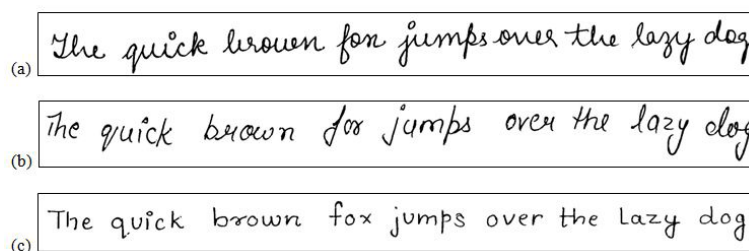 (a) The quick brown fox jumps over the lazy dog
(b) The quick brown fox jumps over the lazy dog
(c) The quick brown fox jumps over the Lazy dog